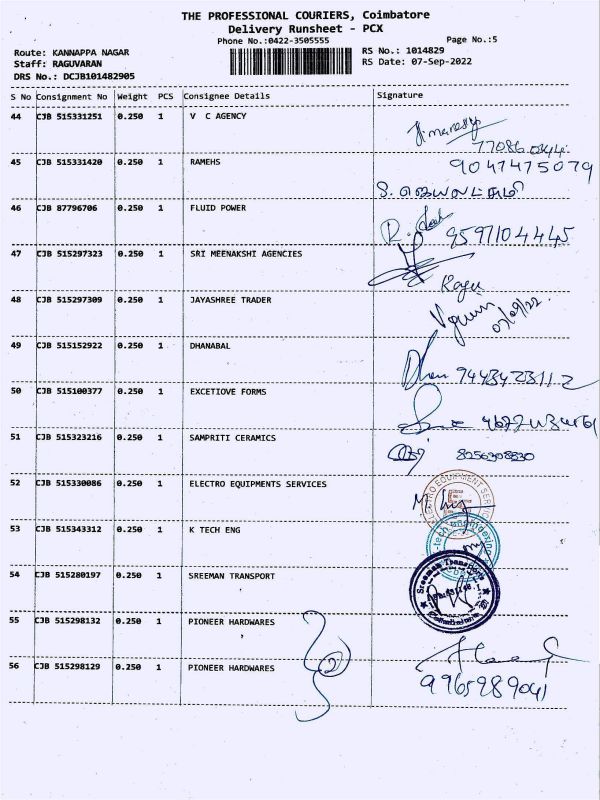 THE PROFESSIONAL COURIERS, Coimbatore
Delivery Runsheet - PCX
Phone No.:0422-3505555 Page No.:5
Route: KANNAPPA NAGAR RS No.: 1014829
Staff: RAGUVARAN RS Date: 07-Sep-2022
DRS No.: DCJB101482905
S No Consignment No Weight PCS Consignee Details Signature
44 CJB 515331251 0.250 1 V C AGENCY
45 CJB 515331420 0.250 1 RAMEHS 9047475079
46 CJB 87796706 0.250 1 FLUID POWER 9597104445
47 CJB 515297323 0.250 1 SRI MEENAKSHI AGENCIES
Raju
48 CJB 515297309 0.250 1 JAYASHREE TRADER
07/09/22
49 CJB 515152922 0.250 1 DHANABAL
50 CJB 515100377 0.250 1 EXCETIOVE FORMS
51 CJB 515323216 0.250 1 SAMPRITI CERAMICS
8256308830
52 CJB 515330086 0.250 1 ELECTRO EQUIPMENTS SERVICES
ELECTRO EQUIPMENT SERVICE
53 CJB 515343312 0.250 1 K TECH ENG
54 CJB 515280197 0.250 1 SREEMAN TRANSPORT
Sreeman Transports
55 CJB 515298132 0.250 1 PIONEER HARDWARES
56 CJB 515298129 0.250 1 PIONEER HARDWARES
2
9965989041